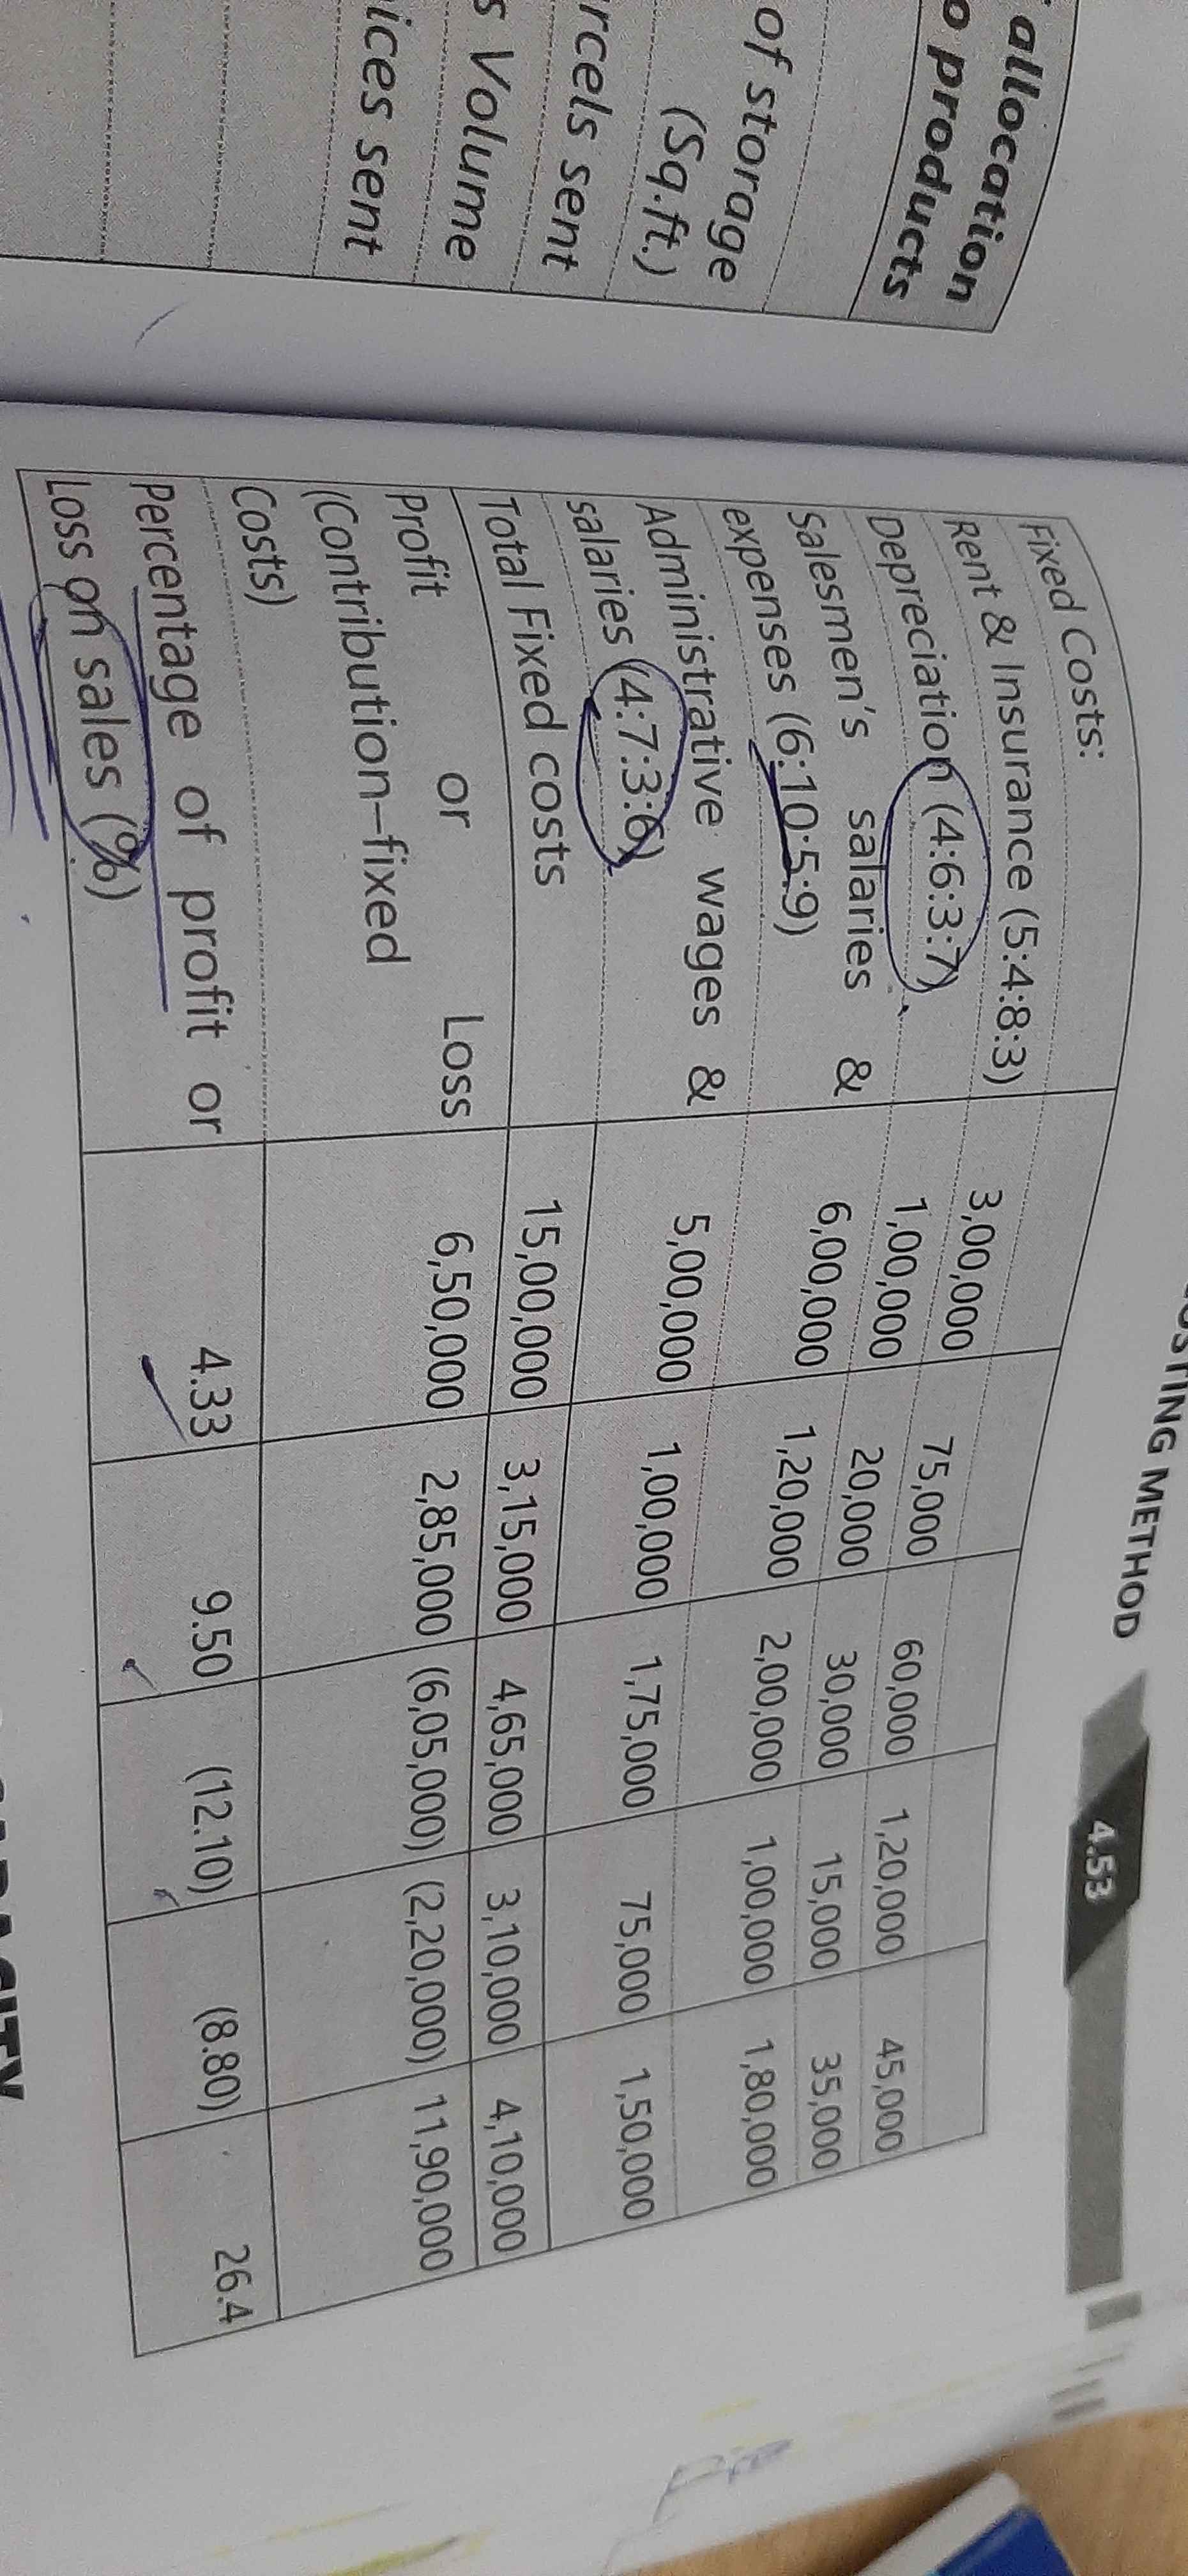 allocation
o products
of storage
(Sq.ft.)
rcels sent
s Volume
ices sent
COSTING METHOD 4.53
Fixed Costs:
Rent & Insurance (5:4:8:3) 3,00,000 75,000 60,000 1,20,000 45,000
Depreciation (4:6:3:7) 1,00,000 20,000 30,000 15,000 35,000
Salesmen's salaries &
expenses (6:10:5:9) 6,00,000 1,20,000 2,00,000 1,00,000 1,80,000
Administrative wages &
salaries (4:7:3:6) 5,00,000 1,00,000 1,75,000 75,000 1,50,000
Total Fixed costs 15,00,000 3,15,000 4,65,000 3,10,000 4,10,000
Profit or Loss 6,50,000 2,85,000 (6,05,000) (2,20,000) 11,90,000
(Contribution–fixed
Costs)
Percentage of profit or 4.33 9.50 (12.10) (8.80) 26.4
Loss on sales (%)